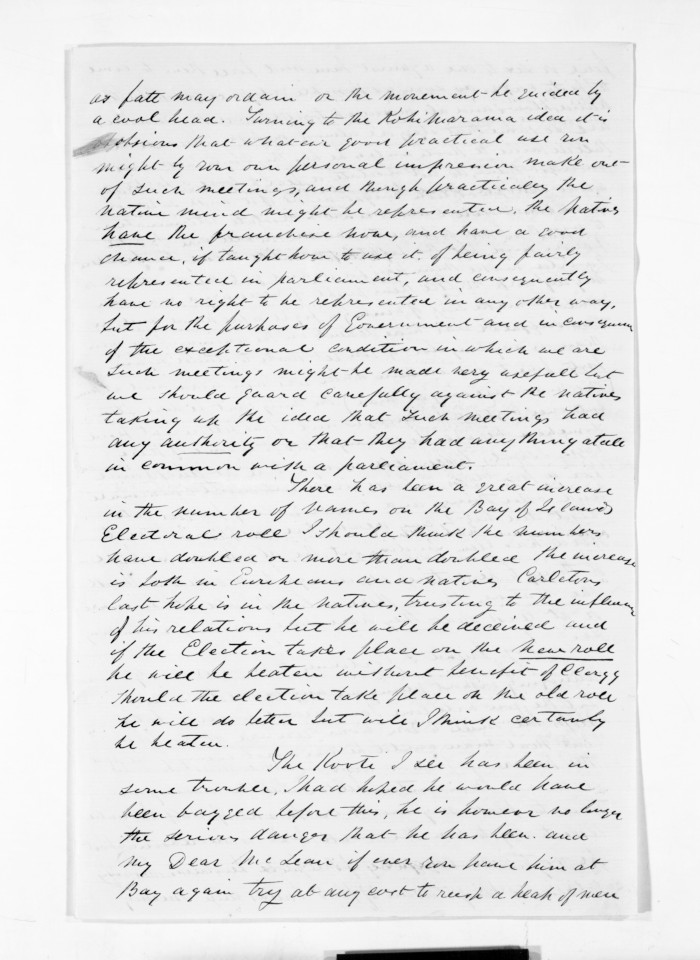 as fate may ordain or the movement be guided by
a cool head. Turning to the Kohimarama idea it is
obvious that whatever good practical use you
might by your own personal impression make out
of such meetings, and though practically the
native mind might be represented, the natives
have the franchise now, and have a good
chance, if taught how to use it, of being fairly
represented in parliament, and consequently
have no right to be represented in any other way,
but for the purposes of Government and in consequence
of the exceptional condition in which we are
such meetings might be made very usefull but
we should guard carefully against the natives
taking up the idea that such meetings had
any authority or that they had any thing atall
in common with a parliament.
There has been a great increase
in the number of names on the Bay of Islands
Electoral roll I should think the numbers
have doubled or more than doubled the increase
is both in Europeans and natives Carletons
last hope is in the natives, trusting to the influence
of his relations but he will be deceived and
if the Election takes place on the new roll
he will be beaten without benefit of Clergy
should the election take place on the old roll
he will do better but will I think certainly
be beaten.
The Kooti I see has been in
some trouble, I had hoped he would have
been bagged before this, he is however no longer
the serious danger that he has been. and
my Dear McLean if ever you have him at
Bay again try at any cost to rush a heap of men